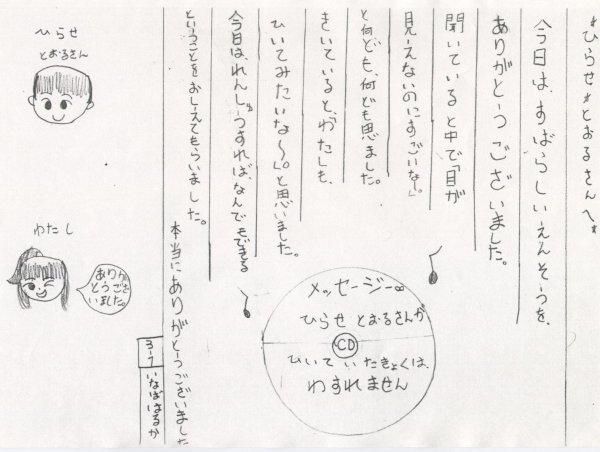 *ひらせ*とおるさんへ*
今日は、すばらしいえんそうを、
ありがとうございました。
聞いていると中で「目が
見えないのにすごいな~」
と何ども、何ども思いました。
きいていると、わたしも、
ひいてみたいな~。と思いました。
今日は、れんしゅうすれば、なんでもできる
ということをおしえてもらいました。
本当にありがとうございました
3-1 いなばはるか
メッセージ∞
ひらせ とおるさんが
CD
ひいていたきょくは、
わすれません
ひらせ
とおるさん
わたし
ありが
とうござ
いました。